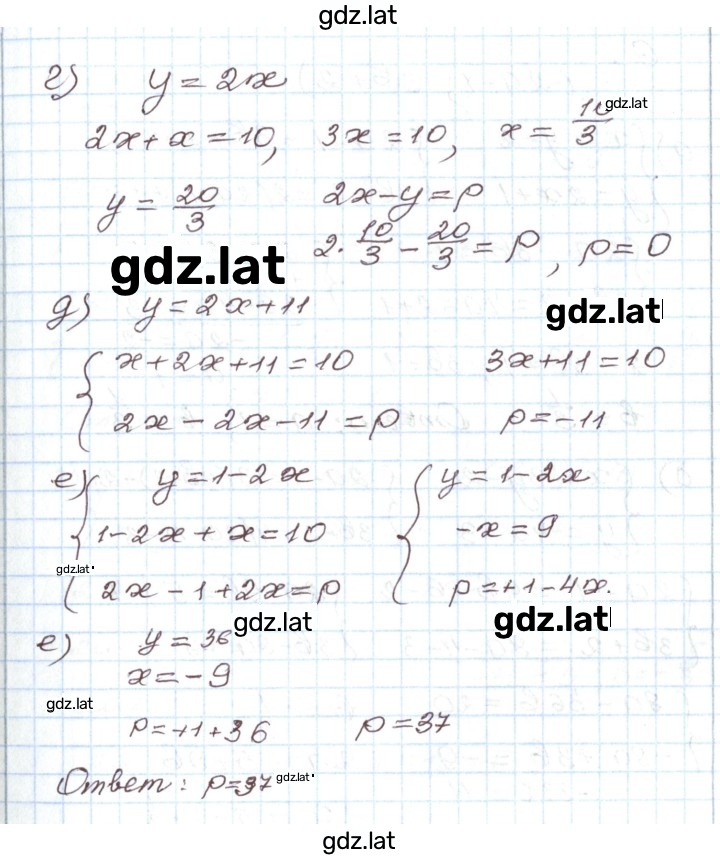 gdz.lat
г) y = 2x
gdz.lat
2x + x = 10, 3x = 10, x = 10/3
y = 20/3 2x - y = p
2 · 10/3 - 20/3 = p, p = 0
gdz.lat
д) y = 2x + 11
gdz.lat
{ x + 2x + 11 = 10 3x + 11 = 10
2x - 2x - 11 = p p = -11
е) { y = 1 - 2x { y = 1 - 2x
1 - 2x + x = 10 -x = 9
gdz.lat
2x - 1 + 2x = p p = +1 - 4x.
gdz.lat
gdz.lat
е) y = 36
x = -9
gdz.lat
p = +1 + 36 p = 37
Ответ: p = 37
gdz.lat
gdz.lat